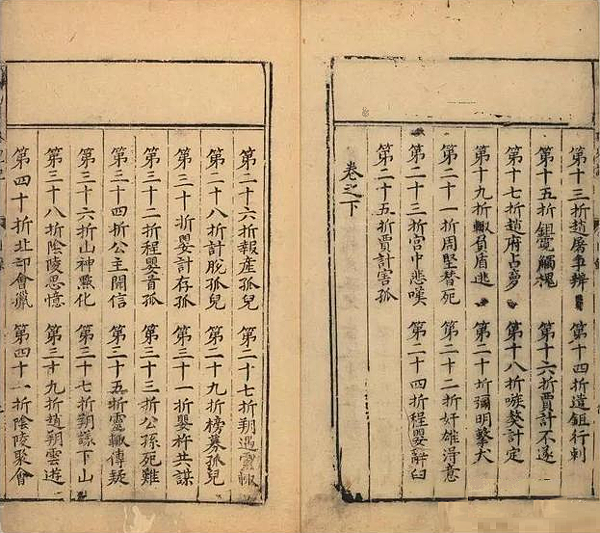 第十三折趙屠爭辨　第十四折遣鉏行刺
第十五折鉏霓觸槐　第十六折賈計不遂
第十七折趙府占夢　第十八折嗾獒計定
第十九折輙負盾逃　第二十折彌明擊犬
第二十一折周堅替死　第二十二折奸雄淂意
第二十三折宮中悲嘆　第二十四折程嬰辭臼
第二十五折賈計害孤
卷之下
第二十六折報產孤兒　第二十七折朔遇靈輙
第二十八折計脫孤兒　第二十九折榜募孤兒
第三十折嬰計存孤　第三十一折嬰杵共謀
第三十二折程嬰首孤　第三十三折公孫死難
第三十四折公主信　第三十五折靈輙傳疑
第三十六折山神點化　第三十七折朔謀下山
第三十八折陰陵思憶　第三十九折趙朔雲遊
第四十折北邙會獵　第四十一折陰陵聚會